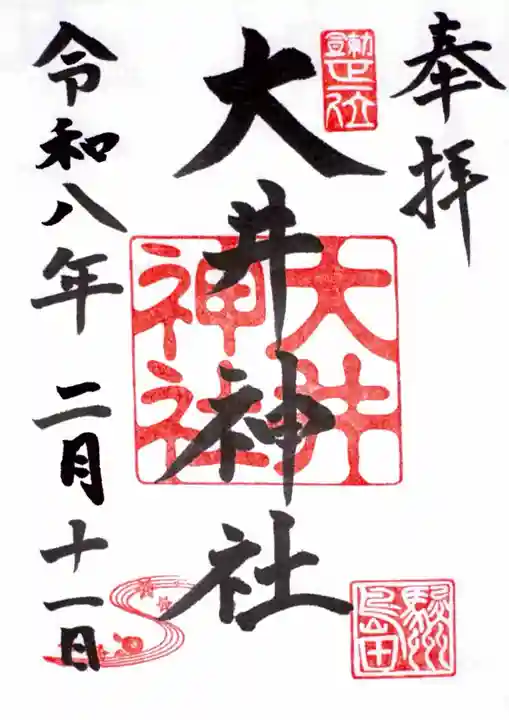 奉拝
勅宣正一位
大井神社
大井神社
駿州島田
令和八年二月十一日